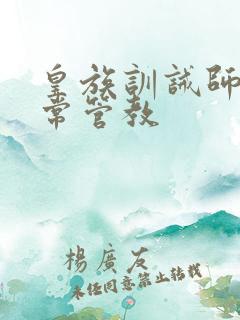 皇族訓誡師
常管教
楊廣友
未經同意禁止轉載